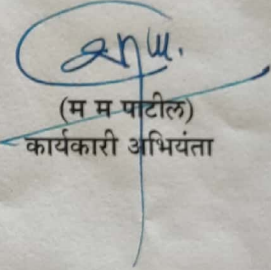 (म म पाटील)
कार्यकारी अभियंता